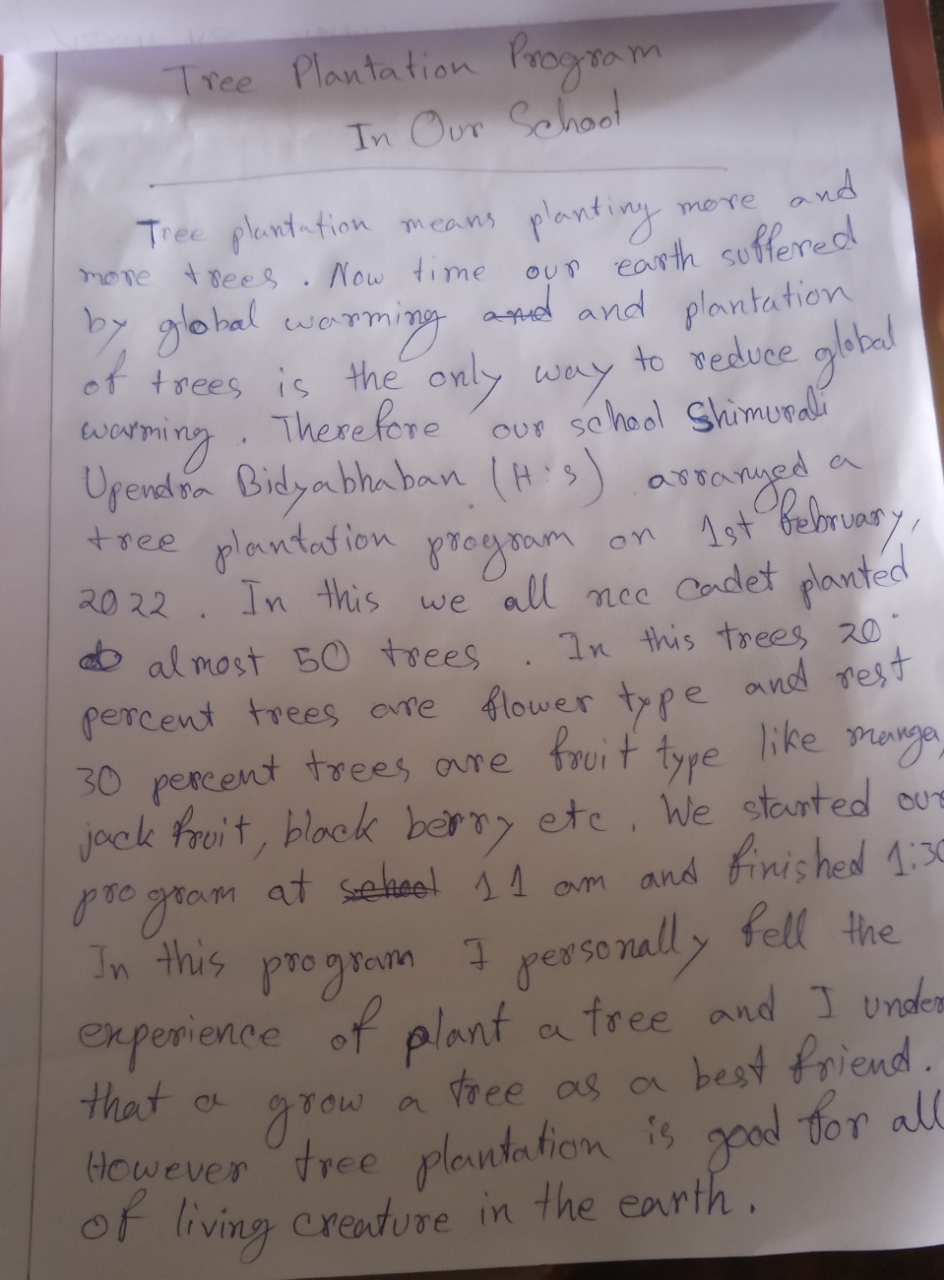 Tree Plantation Program
In Our School
Tree plantation means planting more and
more trees. Now time our earth suffered
by global warming and and plantation
of trees is the only way to reduce global
warming. Therefore our school Shimurali
Upendra Bidyabhaban (H.S) arranged a
tree plantation program on 1st february,
2022. In this we all ncc cadet planted
almost 50 trees. In this trees 20
percent trees are flower type and rest
30 percent trees are fruit type like mango,
jack fruit, black berry etc. We started our
program at school 11 am and finished 1:30
In this program I personally fell the
experience of plant a tree and I under
that a grow a tree as a best friend.
However tree plantation is good for all
of living creature in the earth.